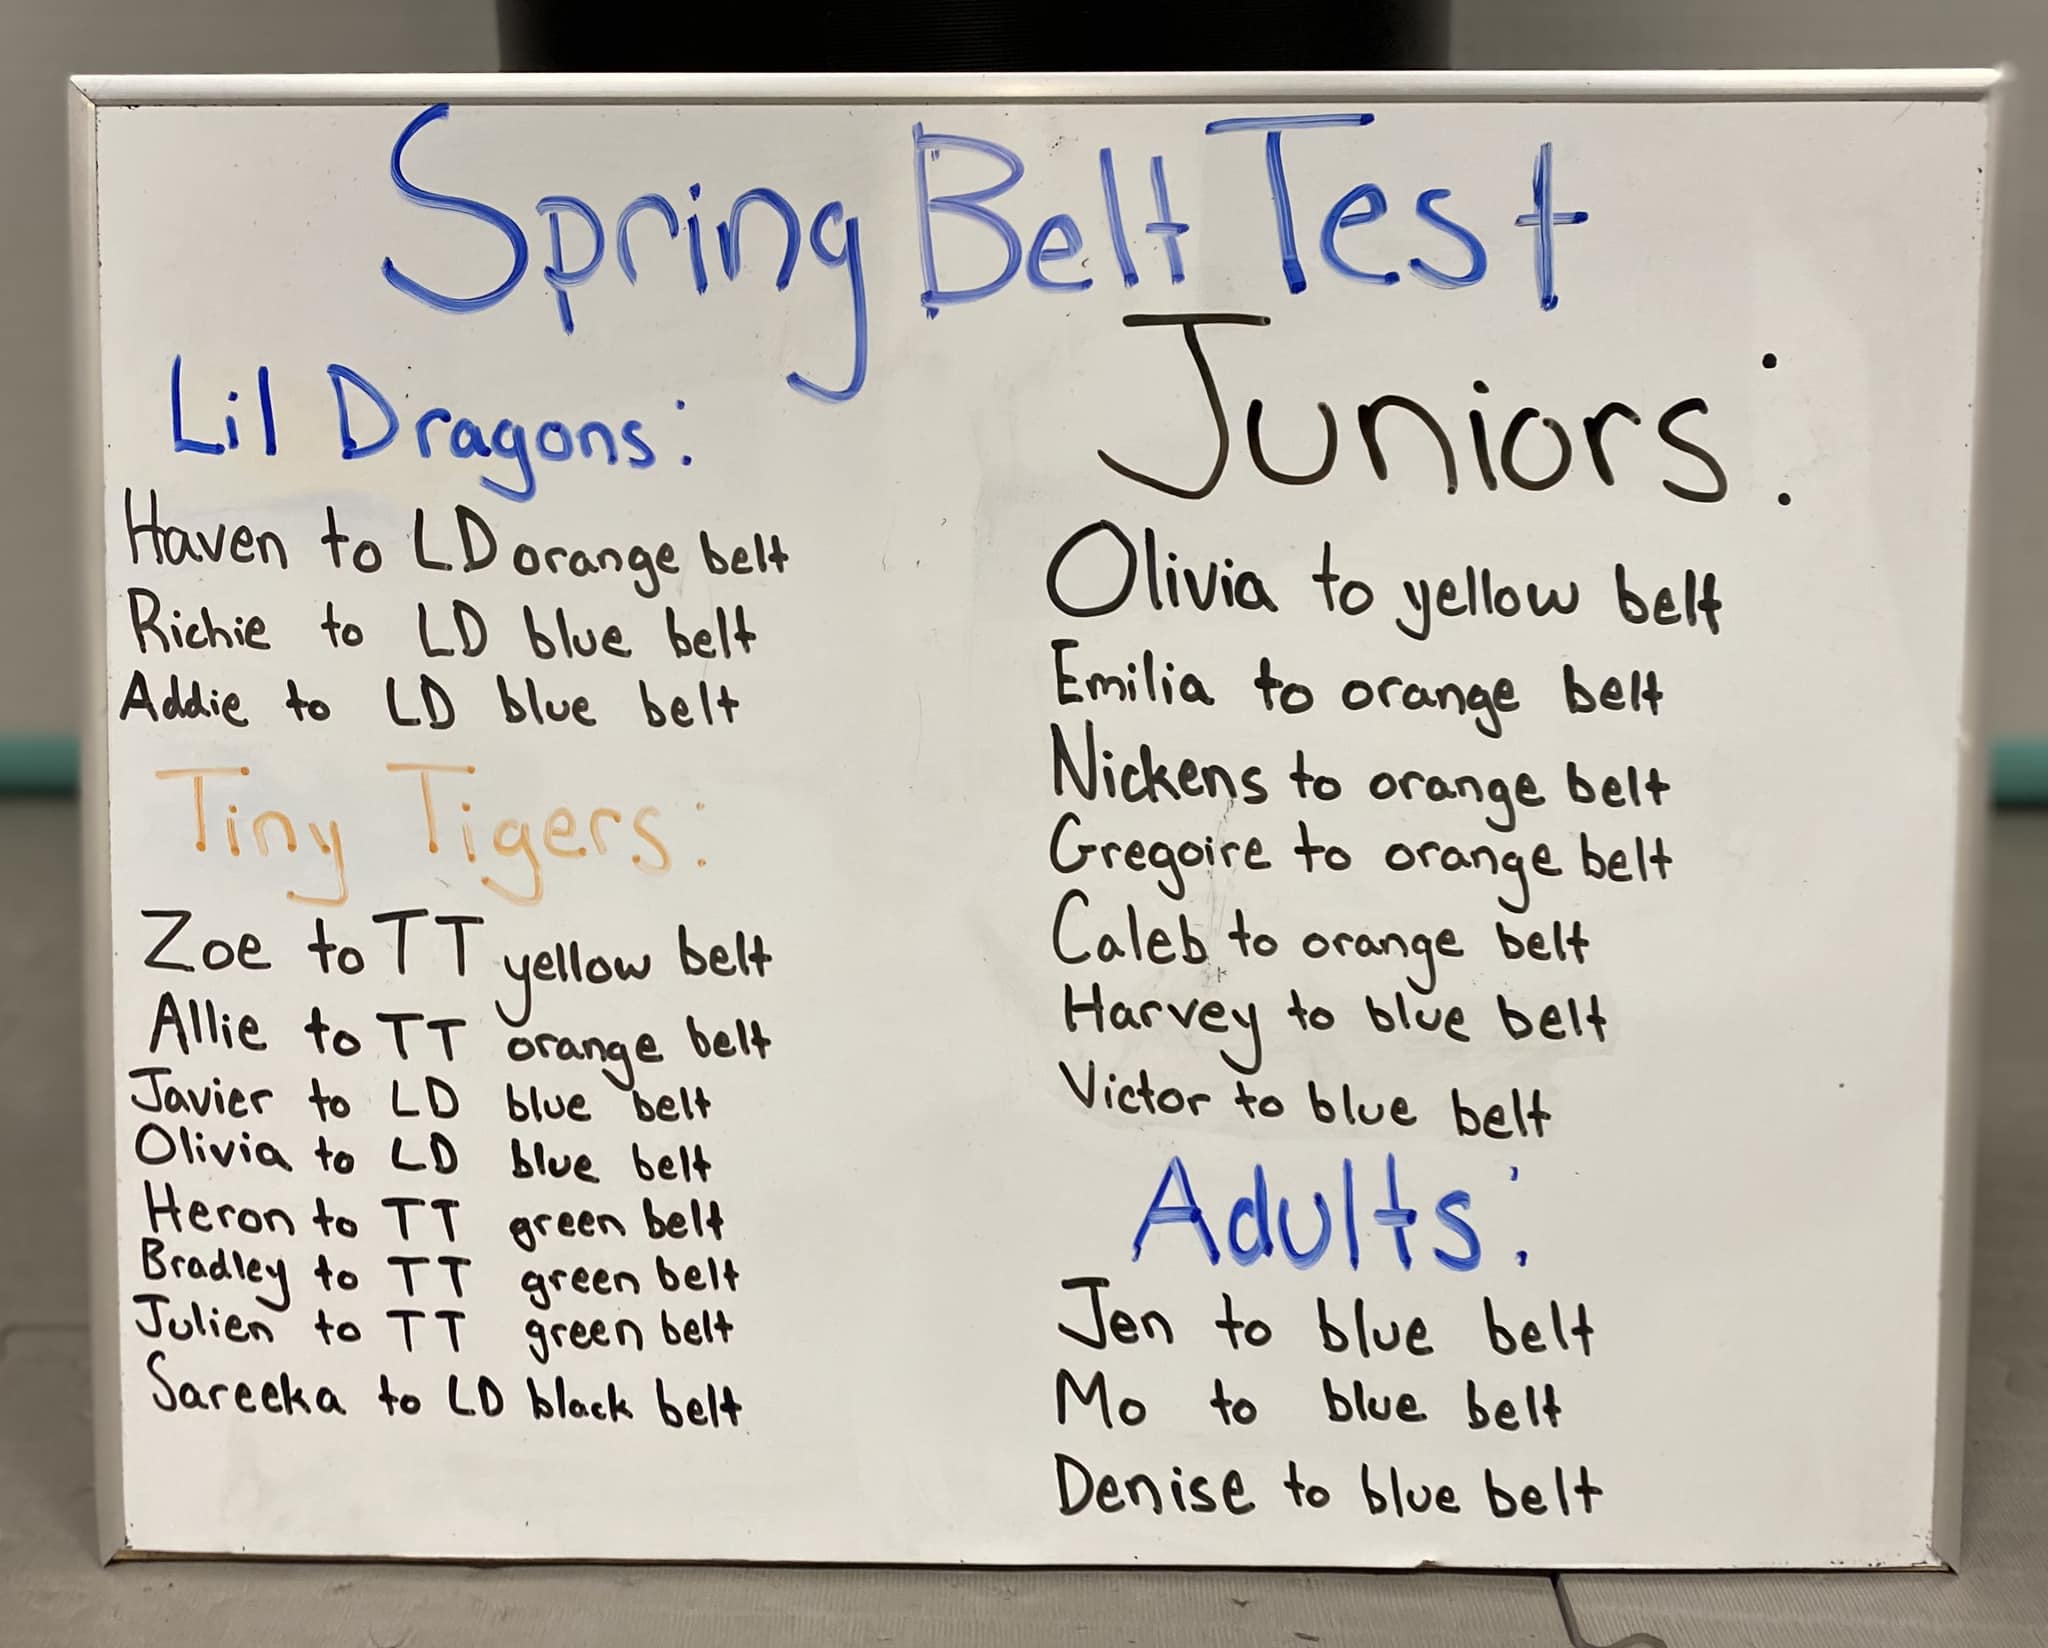 Spring Belt Test
Lil Dragons:
Haven to LD orange belt
Richie to LD blue belt
Addie to LD blue belt
Tiny Tigers:
Zoe to TT yellow belt
Allie to TT orange belt
Javier to LD blue belt
Olivia to LD blue belt
Heron to TT green belt
Bradley to TT green belt
Julien to TT green belt
Sareeka to LD black belt
Juniors:
Olivia to yellow belt
Emilia to orange belt
Nickens to orange belt
Gregoire to orange belt
Caleb to orange belt
Harvey to blue belt
Victor to blue belt
Adults:
Jen to blue belt
Mo to blue belt
Denise to blue belt